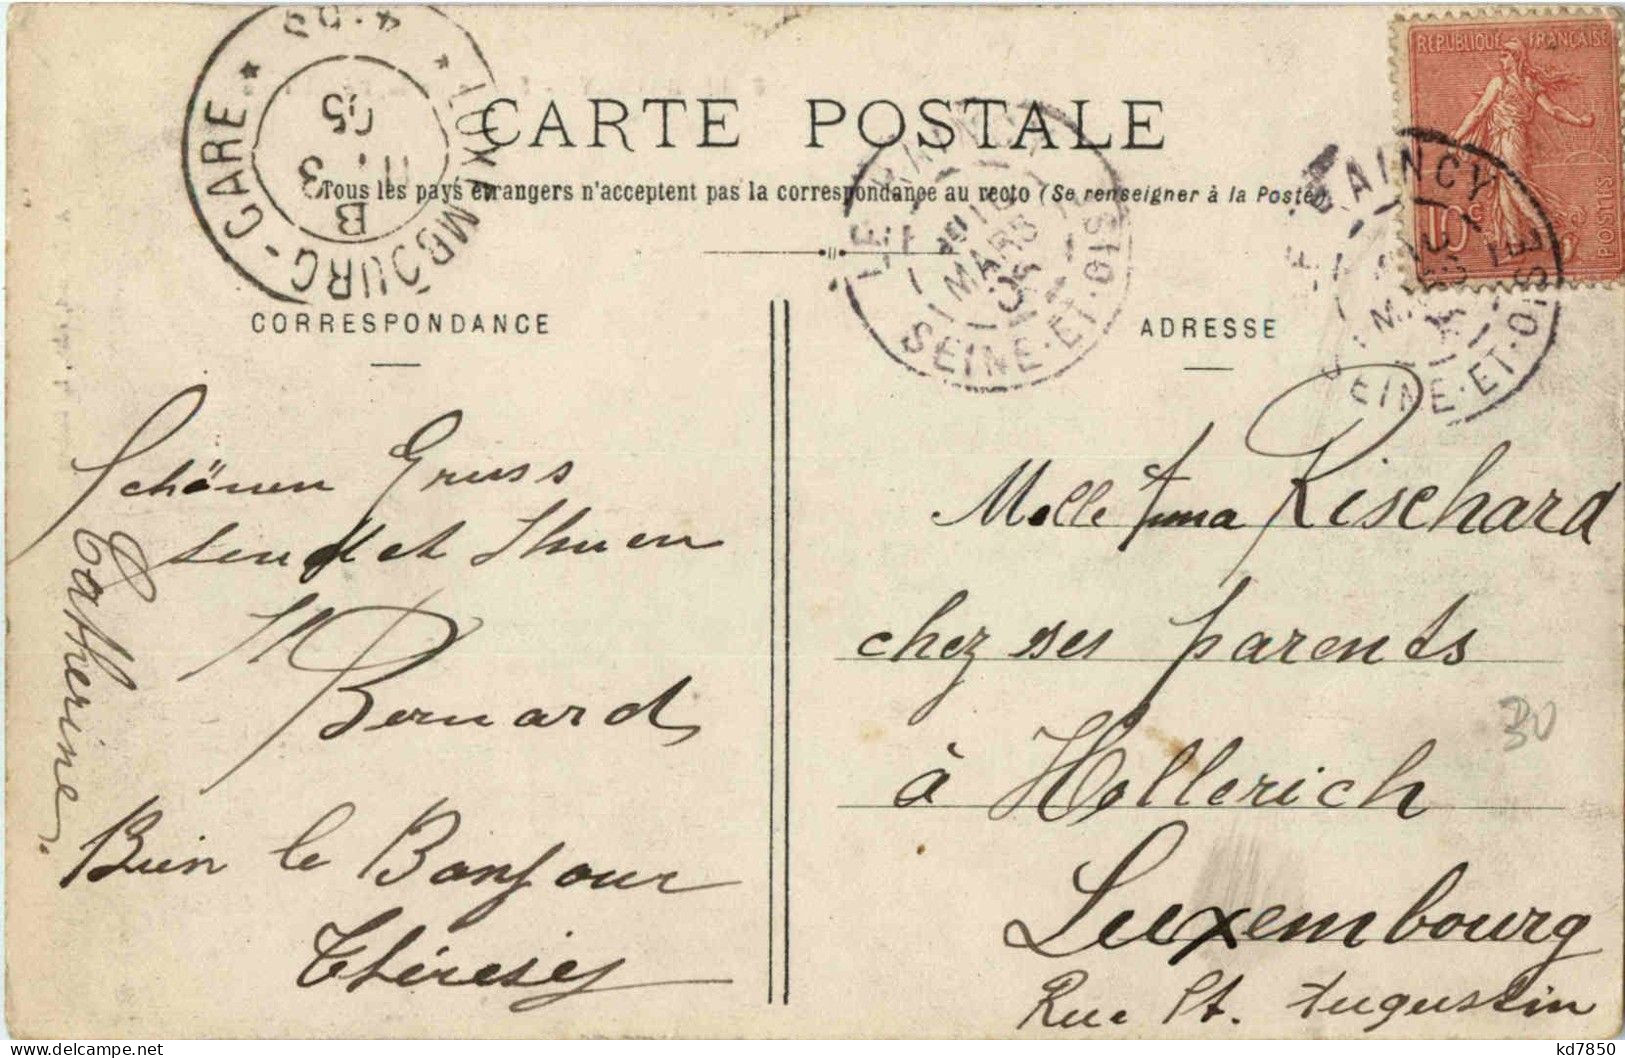 CARTE POSTALE
Tous les pays étrangers n'acceptent pas la correspondance au recto (Se renseigner à la Poste)
LUXEMBOURG-GARE
11.3
05
B
LE RAINCY
MARS
05
SEINE-ET-OISE
LE RAINCY
SEINE-ET-OISE
REPUBLIQUE FRANÇAISE
10c
POSTES
CORRESPONDANCE
Schönen Gruss
sendet Ihnen
Bernard
Catherine.
Bien le Bonjour
Thérèse
ADRESSE
Melle Anna Rischard
chez ses parents
à Hollerich
Luxembourg
Rue St. Augustin
30
kd7850